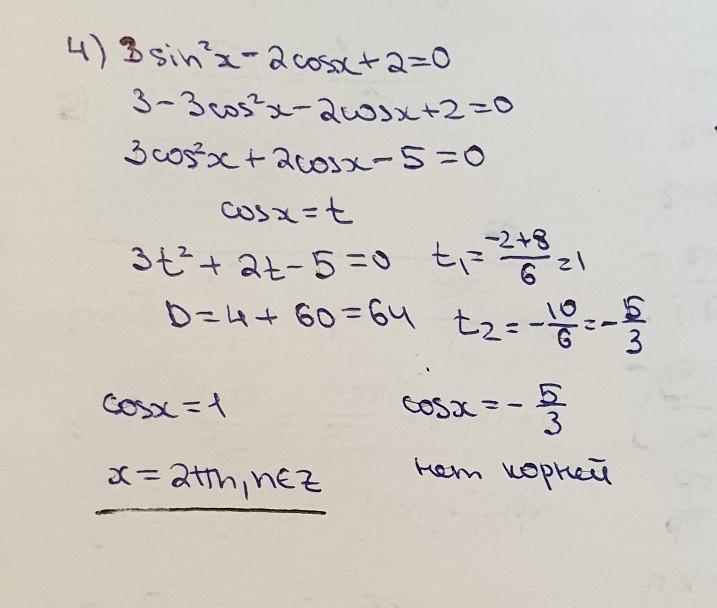 4) 3sin²x - 2cosx + 2 = 0
3 - 3cos²x - 2cosx + 2 = 0
3cos²x + 2cosx - 5 = 0
cosx = t
3t² + 2t - 5 = 0 t₁ = (-2+8)/6 = 1
D = 4 + 60 = 64 t₂ = -10/6 = -5/3
cosx = 1 cosx = -5/3
x = 2πn, n∈Z нет корней